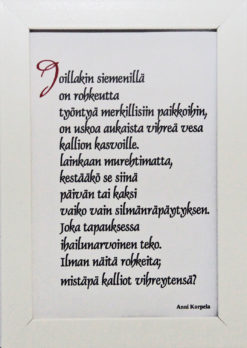 Joillakin siemenillä
on rohkeutta
työntyä merkillisiin paikkoihin,
on uskoa aukaista vihreä vesa
kallion kasvoille.
lainkaan murehtimatta,
kestääkö se siinä
päivän tai kaksi
vaiko vain silmänräpäytyksen.
Joka tapauksessa
ihailunarvoinen teko.
Ilman näitä rohkeita;
mistäpä kalliot vihreytensä?
Anni Korpela